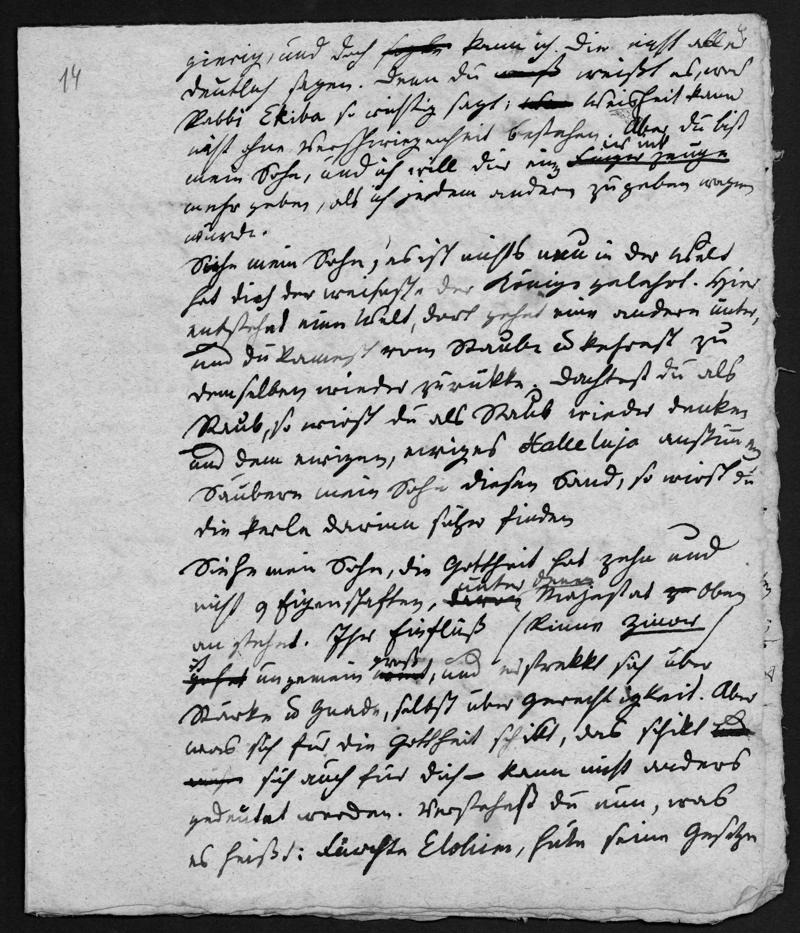 14
gierig, und doch kann ich Dir nicht alles
deutlich sagen. Denn du weißt es, was
Rabbi Ekiba so wichtig sagt: Weisheit kann
nicht ohne Verschwiegenheit bestehen. Aber du bist
mein Sohn, und ich will dir ein Fingerzeuge
mehr geben, als ich jedem andern zu geben wagen
würde.
Siehe mein Sohn, es ist nichts neu in der Welt
hat dich der weiseste der Könige gelehrt. Hier
entstehet eine Welt, dort gehet eine andere unter,
und du kamest vom Staube u kehrest zu
demselben wieder zurükke. Dachtest du als
Staub, so wirst du als Staub wieder denken
und dem ewigen, ewiges Halleluja anstimmen
Säubere mein Sohn diesen Sand, so wirst du
die Perle darinn sicher finden
Siehe mein Sohn, die Gottheit hat zehn und
nicht 9 Eigenschaften, unter denen Majestät oben
an stehet. Ihr Einfluß (Rinne Zinor)
ist ungemein groß, und erstrekkt sich über
Stärke u Gnade, selbst über Gerechtigkeit. Aber
was sich für die Gottheit schikt, das schikt
sich auch für dich – kann nicht anders
gedeutet werden. Verstehest du nun, was
es heißt: Fürchte Elohim, hüte seine Gesetze